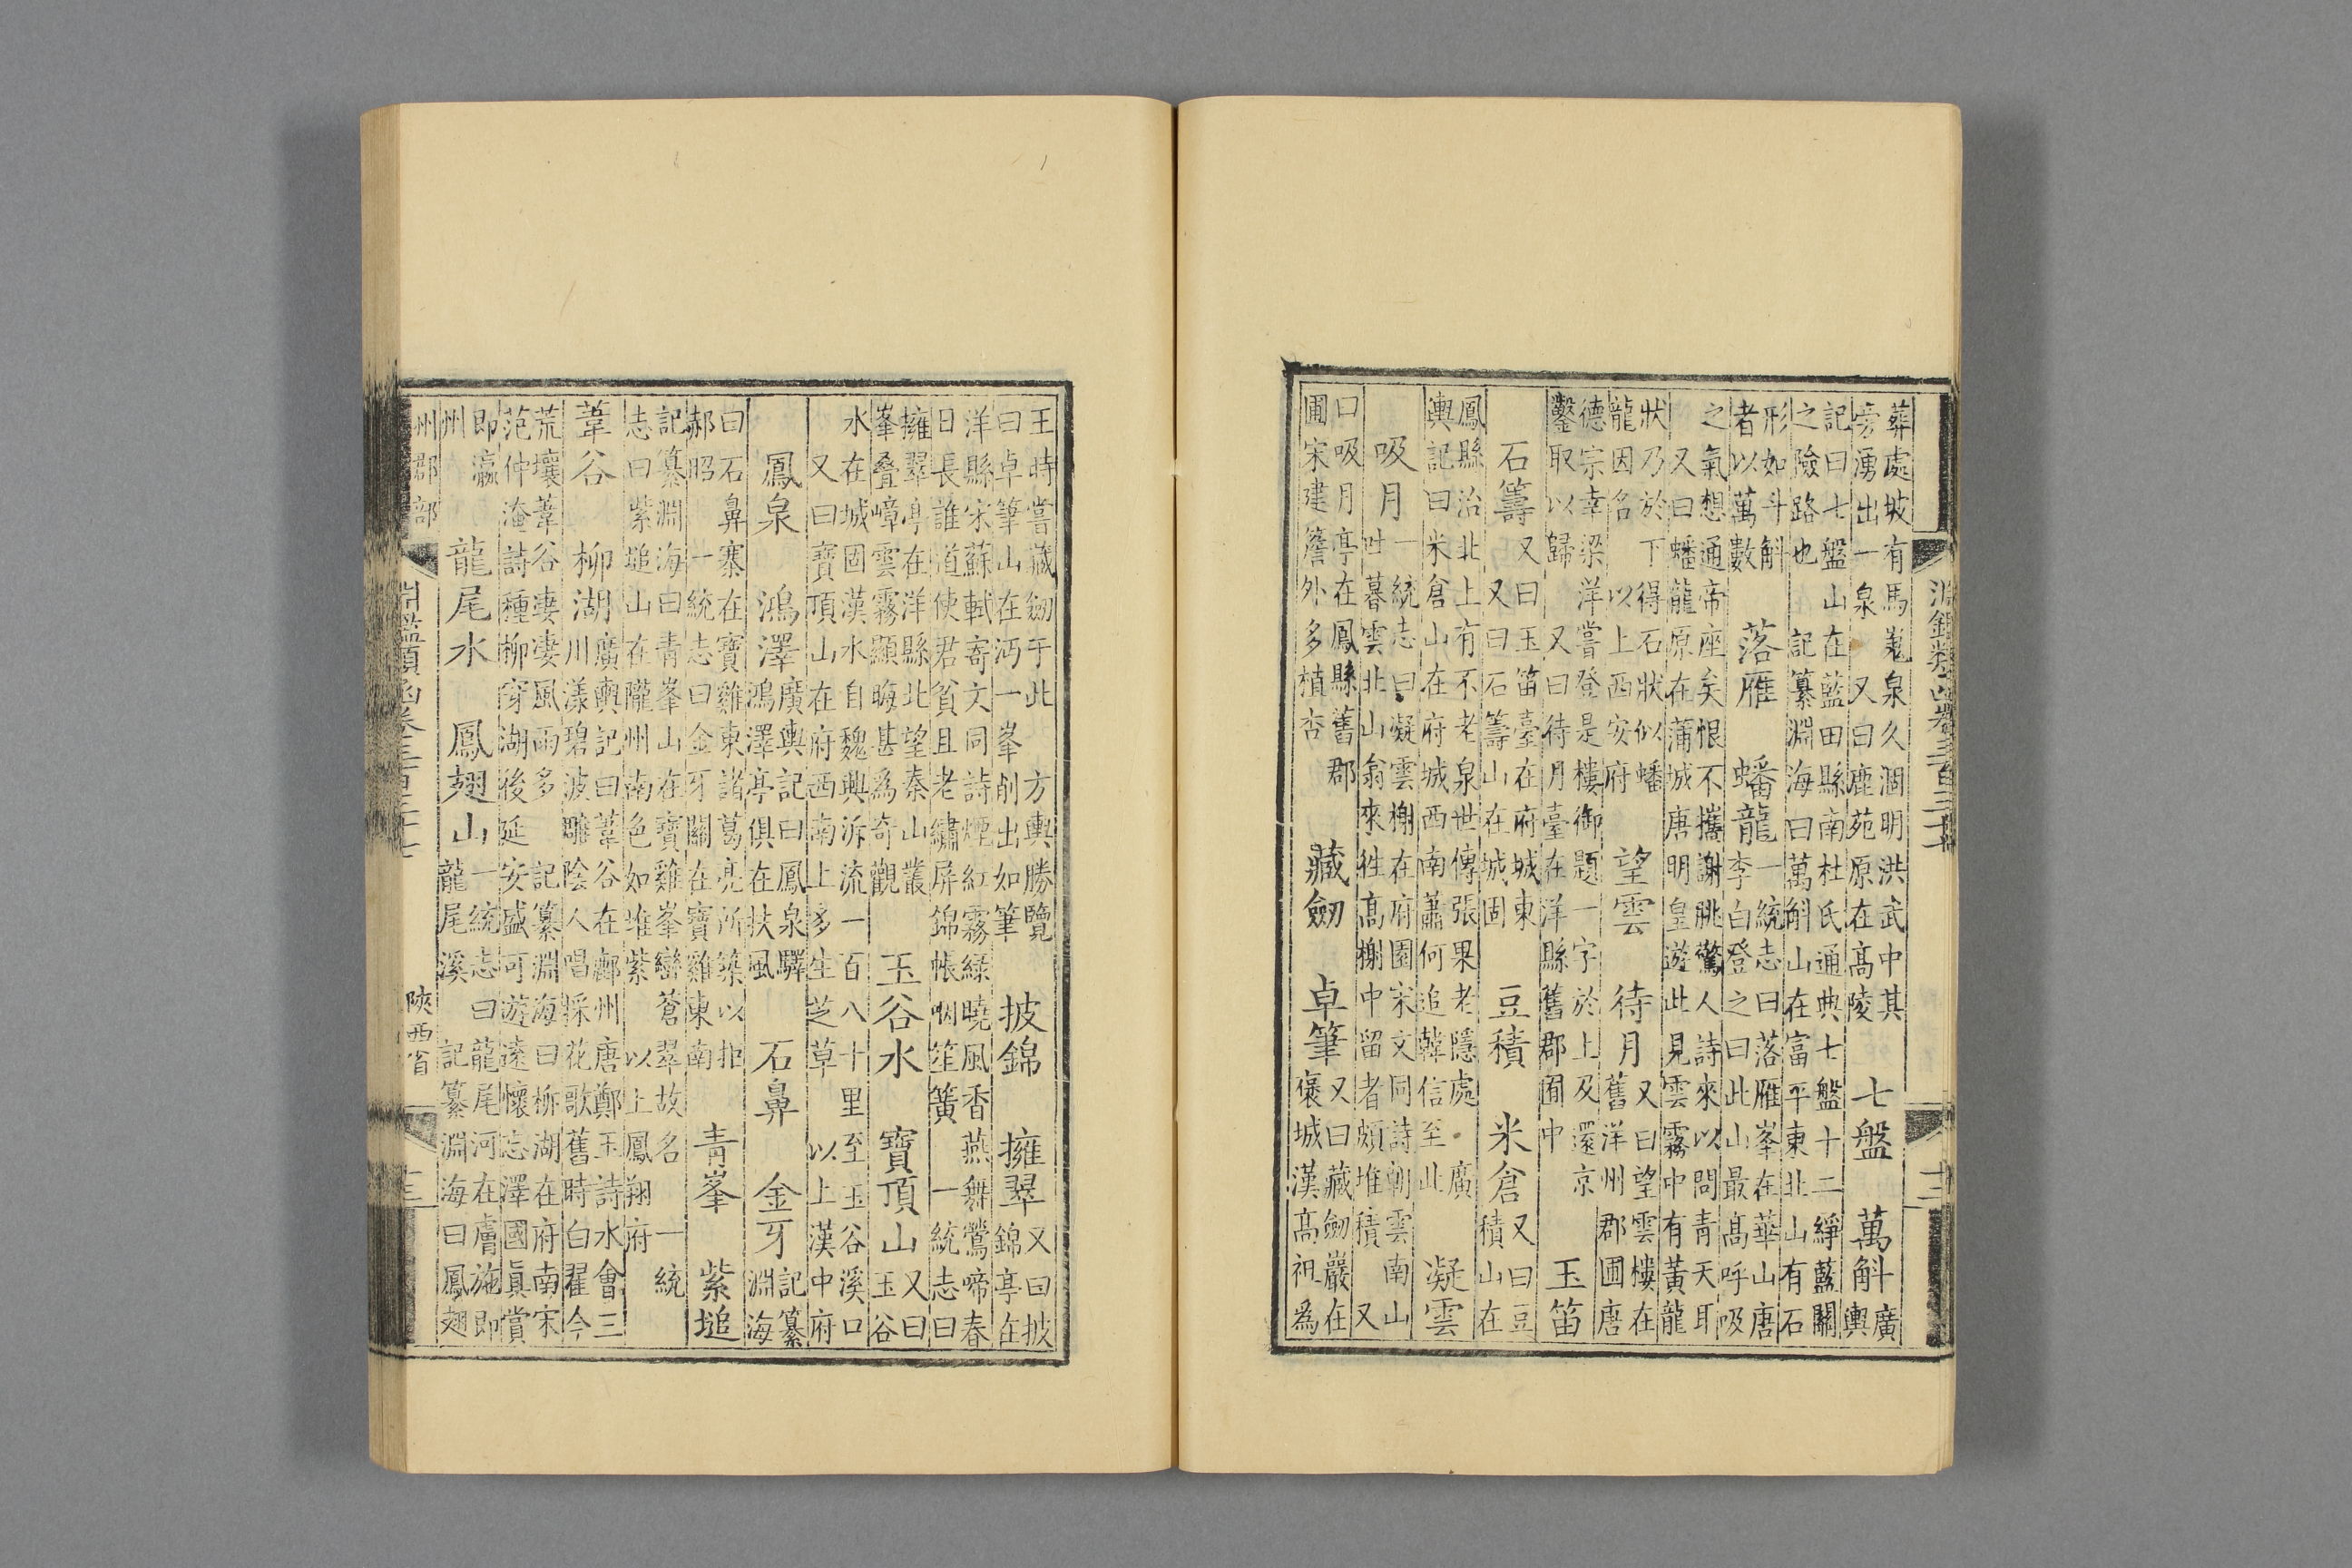 淵鑑類函卷三百三十七
十二
葬處坡有馬嵬泉久涸明洪武中其
旁湧出一泉 又曰鹿苑原在高陵
七盤 萬斛
廣
輿
記曰七盤山在藍田縣南杜氏通典七盤十二繂藍關
之險路也 記纂淵海曰萬斛山在富平東北山有石
形如斗斛
者以萬數
落雁 蟠龍
一統志曰落雁峯在華山唐
李白登之曰此山最高呼吸
之氣想通帝座矣恨不攜謝脁驚人詩來以問青天耳
又曰蟠龍原在蒲城唐明皇遊此見雲霧中有黃龍
狀乃於下得石狀似蟠
龍因名 以上西安府
望雲 待月
又曰望雲樓在
舊洋州郡圃唐
德宗幸梁洋嘗登是樓御題一字於上及還京
鑿取以歸 又曰待月臺在洋縣舊郡囿中
玉笛
石籌
又曰玉笛臺在府城東
又曰石籌山在城固
豆積 米倉
又曰豆
積山在
鳳縣治北上有不老泉世傳張果老隱處 廣
輿記曰米倉山在府城西南蕭何追韓信至此
凝雲
吸月
一統志曰凝雲榭在府園宋文同詩朝雲南山
吐暮雲北山翁來徃高榭中留者頗堆積 又
口吸月亭在鳳縣舊郡
圃宋建簷外多植杏
藏劒 卓筆
又曰藏劒巖在
褒城漢高祖爲
王時嘗藏劒于此 方輿勝覽
曰卓筆山在沔一峯削出如筆
披錦 擁翠
又曰披
錦亭在
洋縣宋蘇軾寄文同詩煙紅霧綠曉風香燕舞鶯啼春
日長誰道使君貧且老繡屏錦帳咽笙簧 一統志曰
擁翠亭在洋縣北望秦山叢
峯疊嶂雲霧顯晦甚爲奇觀
玉谷水 寶頂山
又曰
玉谷
水在城固漢水自魏興泝流一百八十里至玉谷溪口
又曰寶頂山在府西南上多生芝草 以上漢中府
鳳泉 鴻澤
廣輿記曰鳳泉驛
鴻澤亭俱在扶風
石鼻 金牙
記纂
淵海
曰石鼻寨在寶雞東諸葛亮所築以拒
郝昭 一統志曰金牙關在寶雞東南
青峯 紫塠
記纂淵海曰青峯山在寶雞峯巒蒼翠故名 一統
志曰紫塠山在隴州南色如堆紫 以上鳳翔府
葦谷 柳湖
廣輿記曰葦谷在鄜州唐鄭玉詩水會三
川漾碧波雕陰人唱採花歌舊時白翟今
荒壤葦谷淒淒風雨多 記纂淵海曰柳湖在府南宋
范仲淹詩種柳穿湖後延安盛可遊遠懷忘澤國眞賞
即瀛
州
龍尾水 鳳翅山
一統志曰龍尾河在膚施即
龍尾溪 記纂淵海曰鳳翅
州郡部
淵鑑類函卷三百三十七
陝西省
十三